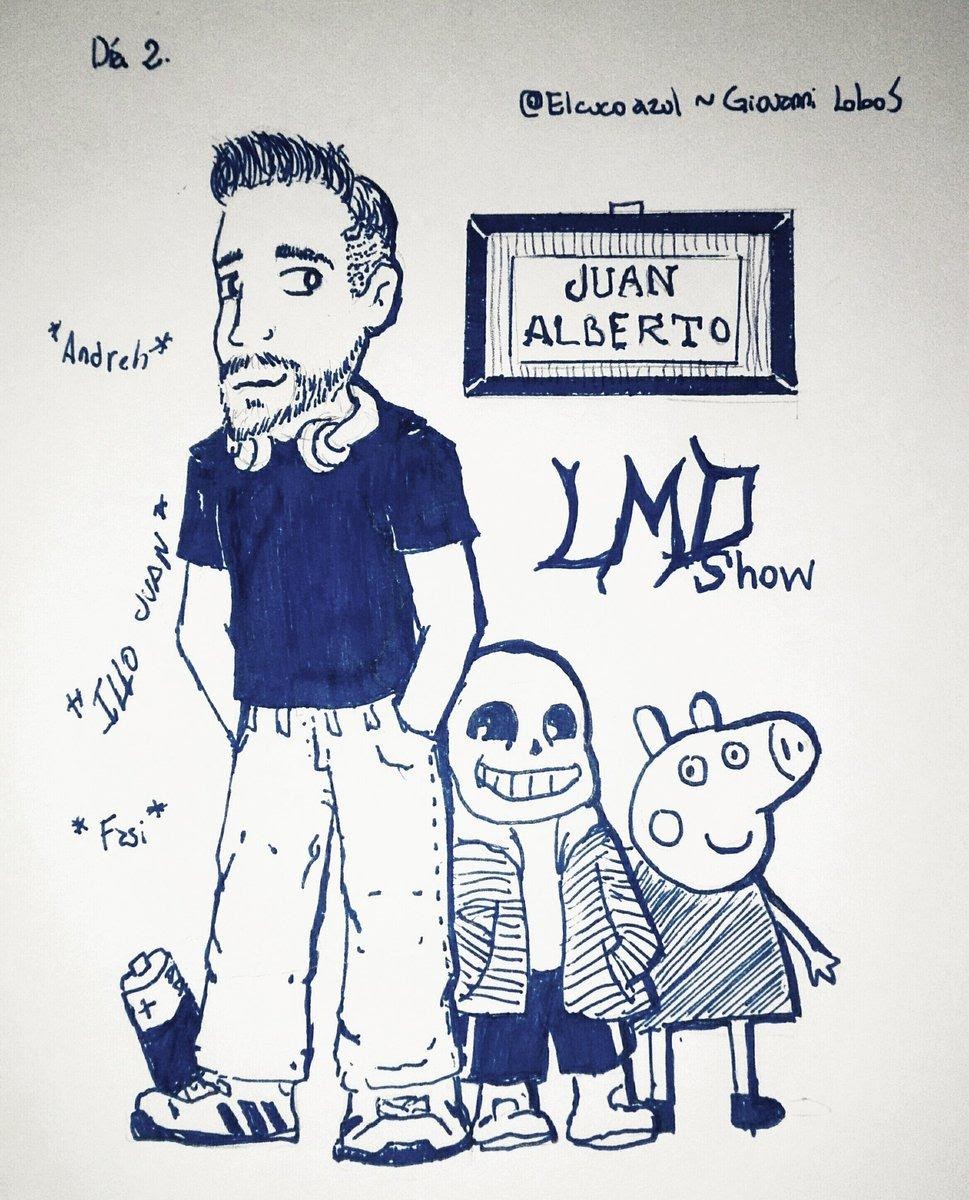 Día 2.
@Elcucoazul ~ Giovanni Lobos
JUAN
ALBERTO
*Andreh*
LMD
Show
"ILLO JUAN*
*Fasi*
+